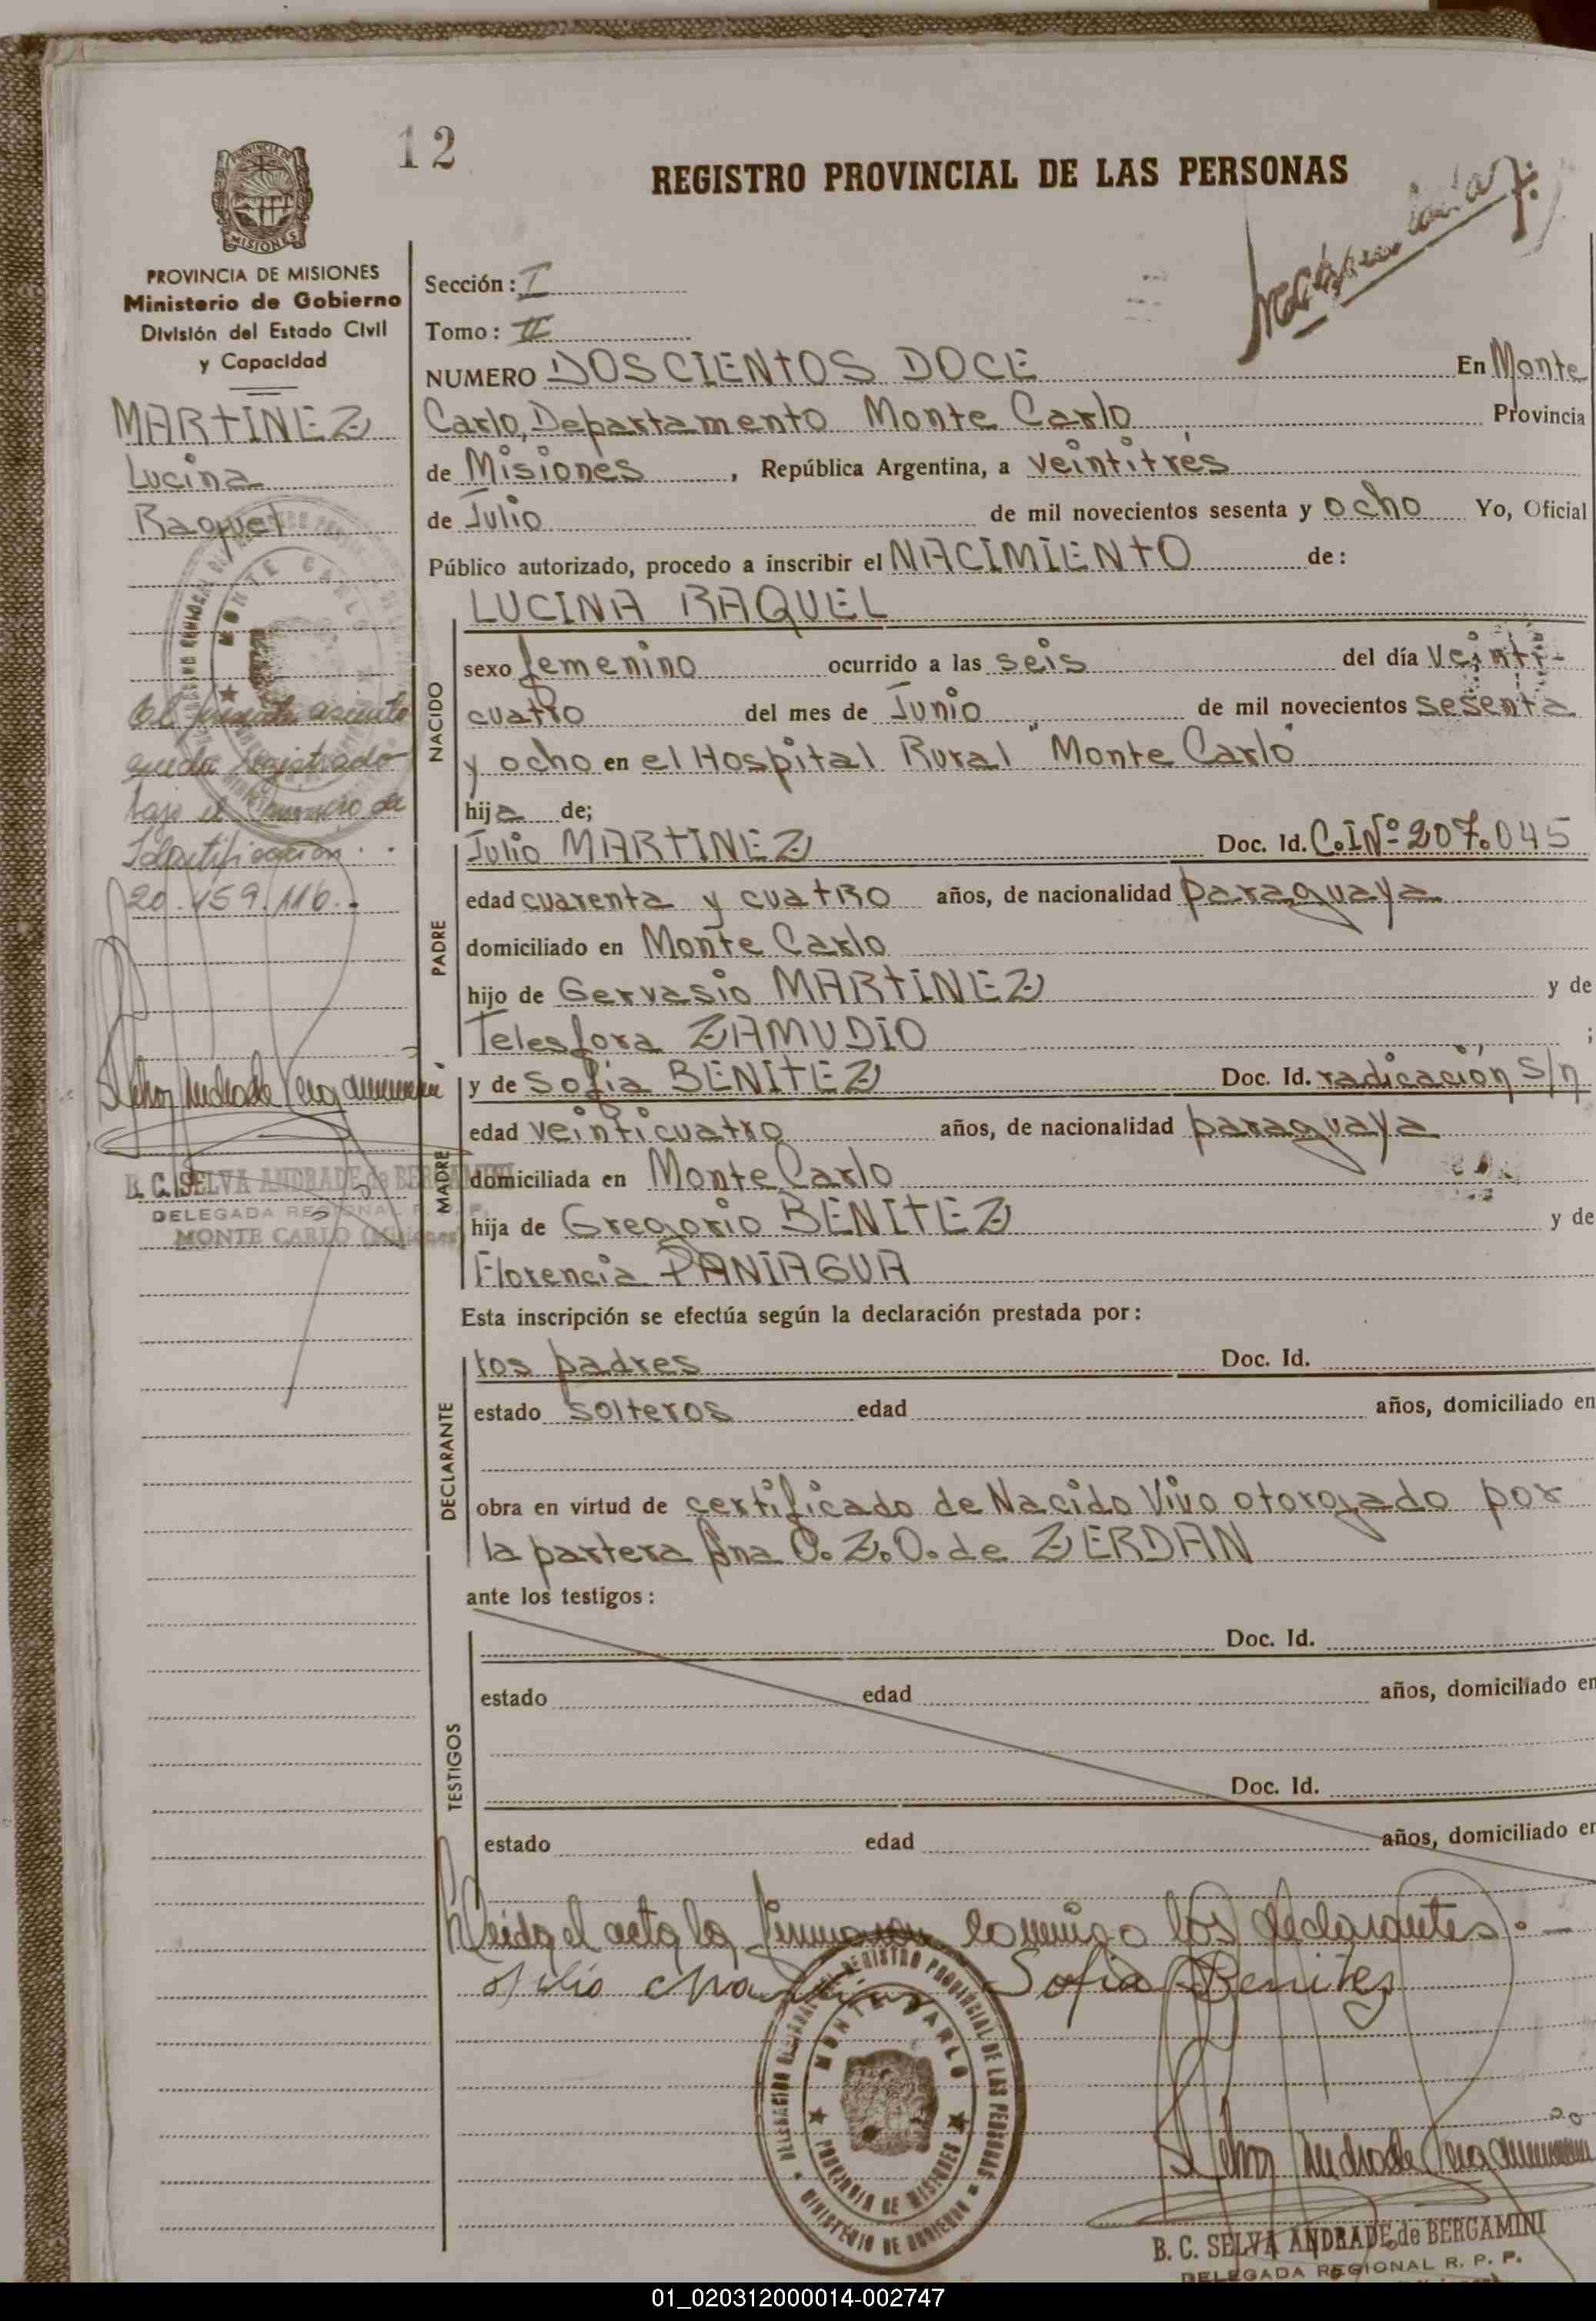 12
REGISTRO PROVINCIAL DE LAS PERSONAS
PROVINCIA DE MISIONES
Ministerio de Gobierno
División del Estado Civil
y Capacidad
MARTINEZ
Lucina
Raquel
El presente asiento
queda registrado
bajo el numero de
Identificacion
20.459.116.-
B. C. SELVA ANDRADE de BERGAMINI
DELEGADA REGIONAL R. P. P.
MONTE CARLO (Misiones)
Sección: I
Tomo: II
NUMERO DOSCIENTOS DOCE En Monte
Carlo, Departamento Monte Carlo, Provincia
de Misiones, República Argentina, a veintitres
de Julio de mil novecientos sesenta y ocho Yo, Oficial
Público autorizado, procedo a inscribir el NACIMIENTO de:
LUCINA RAQUEL
NACIDO
sexo femenino ocurrido a las seis del día veinti-
cuatro del mes de Junio de mil novecientos sesenta
y ocho en el Hospital Rural "Monte Carlo"
hija de;
PADRE
Julio MARTINEZ Doc. Id. C.I Nº 207.045
edad cuarenta y cuatro años, de nacionalidad paraguaya
domiciliado en Monte Carlo
hijo de Gervasio MARTINEZ y de
Telesfora ZAMUDIO ;
MADRE
y de Sofía BENITEZ Doc. Id. radicación s/n
edad veinticuatro años, de nacionalidad paraguaya
domiciliada en Monte Carlo
hija de Gregorio BENITEZ y de
Florencia PANIAGUA
Esta inscripción se efectúa según la declaración prestada por:
DECLARANTE
los padres Doc. Id.
estado solteros edad años, domiciliado en
obra en virtud de certificado de Nacido Vivo otorgado por
la partera Ana O. Z. O. de ZERDAN
ante los testigos:
TESTIGOS
Doc. Id.
estado edad años, domiciliado en
Doc. Id.
estado edad años, domiciliado en
Leida el acta la firmaron conmigo los declarantes.-
Julio Martinez Sofia Benites
DELEGACION REGIONAL DE REGISTRO PROVINCIAL DE LAS PERSONAS
MONTE CARLO
PROVINCIA DE MISIONES
MINISTERIO DE GOBIERNO
B. C. SELVA ANDRADE de BERGAMINI
DELEGADA REGIONAL R. P. P.
01_020312000014-002747